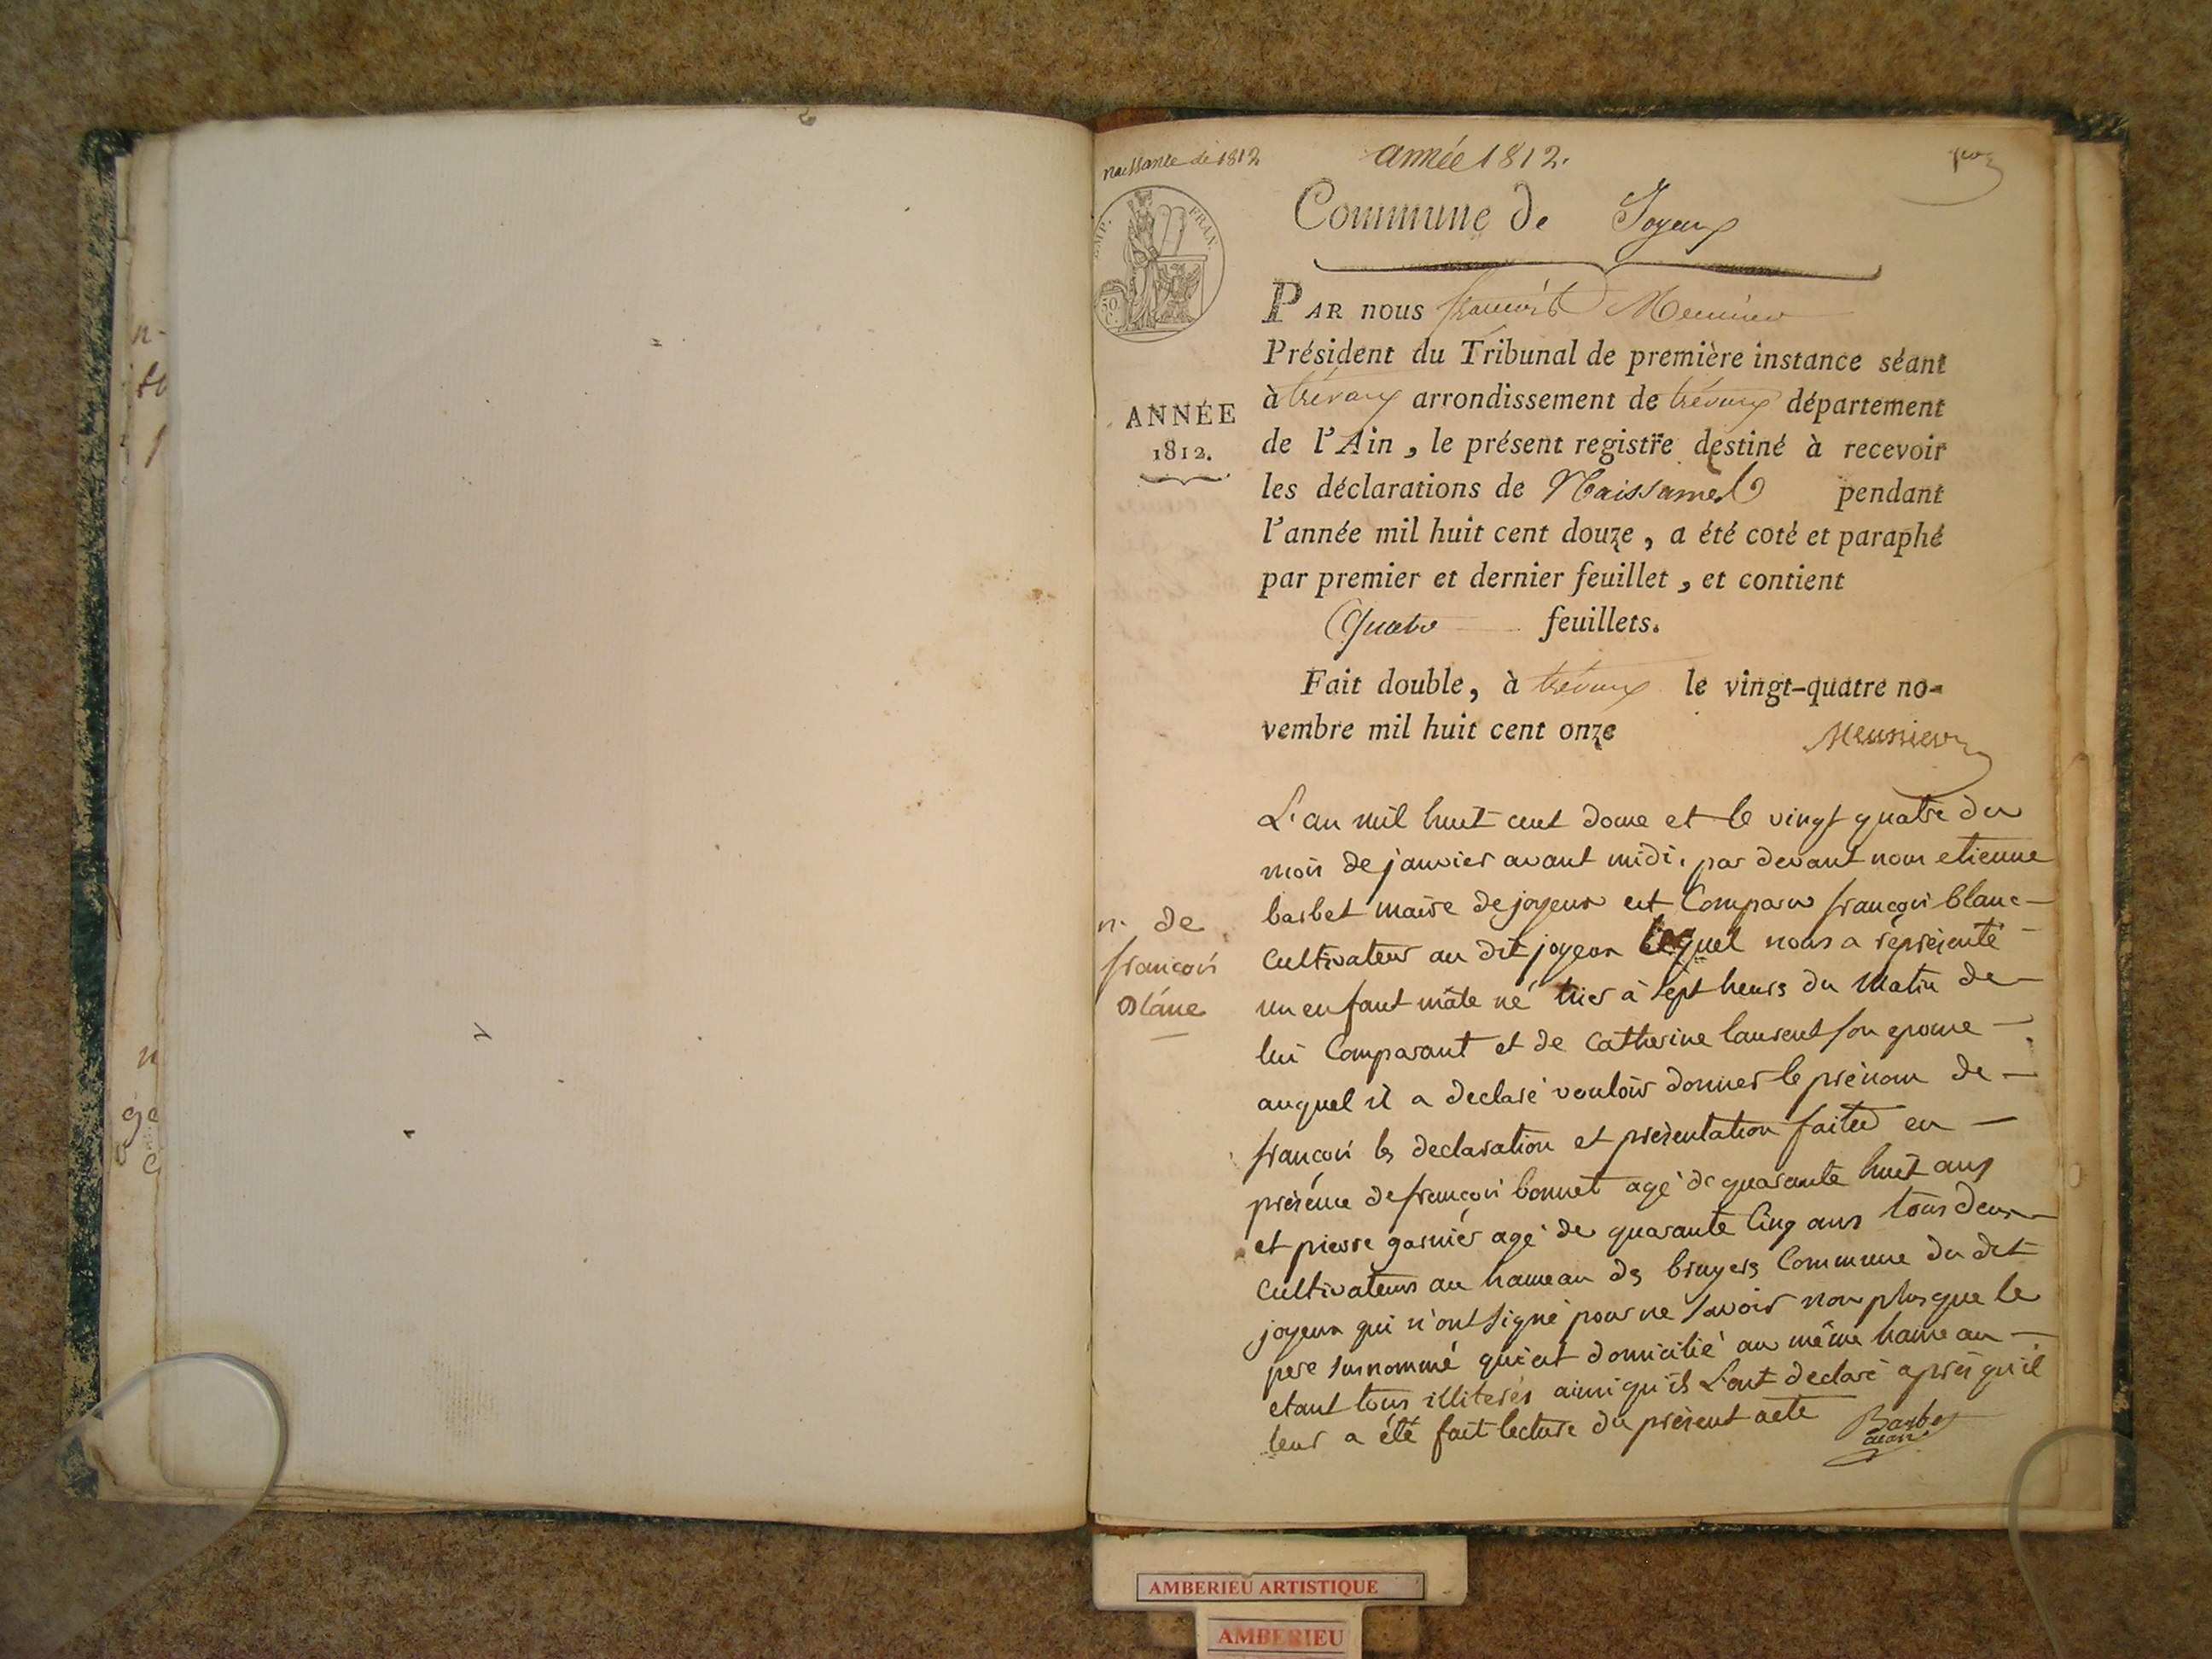 naissance de 1812
année 1812.
Commune de Joyeux
EMP. FRAN.
50
C.
PAR nous françois Meunier
Président du Tribunal de première instance séant
à trévoux arrondissement de trévoux département
ANNÉE
1812.
de l'Ain, le présent registre destiné à recevoir
les déclarations de Naissances pendant
l'année mil huit cent douze, a été coté et paraphé
par premier et dernier feuillet, et contient
Quatre feuillets.
Fait double, à trévoux le vingt-quatre no-
vembre mil huit cent onze
Meunier
L'an mil huit cent douze et le vingt quatre du
mois de janvier avant midi. par devant nous etienne
barbet maire de joyeux est Comparu françois blanc
n. de
françois
blanc
Cultivateur au dit joyeux lequel nous a réprésenté
un enfant mâle né hier à sept heurs du Matin de
lui Comparant et de Catherine laurent son epouse
auquel il a declaré vouloir donner le prénom de
françois les declaration et présentation faites en
présence de françois bonnet agé de quarante huit ans
et pierre garnier agé de quarante Cinq ans tous deux
Cultivateurs au hameau des bruyers Commune du dit
joyeux qui n'ont signé pour ne savoir non plus que le
pere surnommé qui est domicilié au même hameau
etant tous illiterés ainsi qu'ils L'ont declaré après qu'il
leur a été fait lecture du présent acte
Barbet
n-
n
ge
AMBERIEU ARTISTIQUE
AMBERIEU